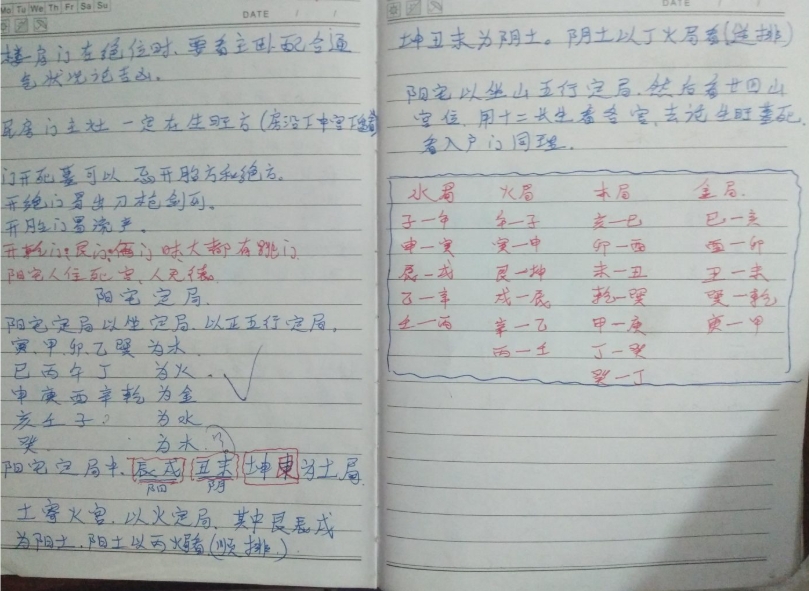 Mo Tu We Th Fr Sa Su
DATE / /
楼房门在绝位时,要看主卧配合通
气状况论吉凶。
民房门主灶 一定在生旺方(房
门开死墓可以 忌开胎方和绝方。
开绝门易出刀枪剑
开胎门易流产。
开乾门
阳宅人住死宫,人
阳宅定局.
阳宅定局以坐定局.以正五行定局,
寅.甲.卯.乙巽 为木.
巳 丙 午 丁 为火.
申 庚 酉 辛 乾 为金
亥 壬 子? 为水
癸. 为水.?
阳宅定局中.辰戌 丑未 坤 为土局
阳 阴
土寄火宫.以火定局.其中艮辰戌
为阳土.阳土以丙火局看(顺排.)
DATE / /
坤丑未为阴土。阴土以丁火局看(逆排)
阳宅以坐山五行定局.然后看廿四山
宫位.用十二长生看各宫.去论生旺墓死.
看入户门同理.
水局 火局 木局 金局.
子一午 午一子 亥一巳 巳一亥
申一寅 寅一申 卯一酉 酉一卯
辰一戌 艮一坤 未一丑 丑一未
乙一辛 戌一辰 乾一巽 巽一乾
壬一丙 辛一乙 甲一庚 寅一甲
丙一壬 丁一癸
癸一丁